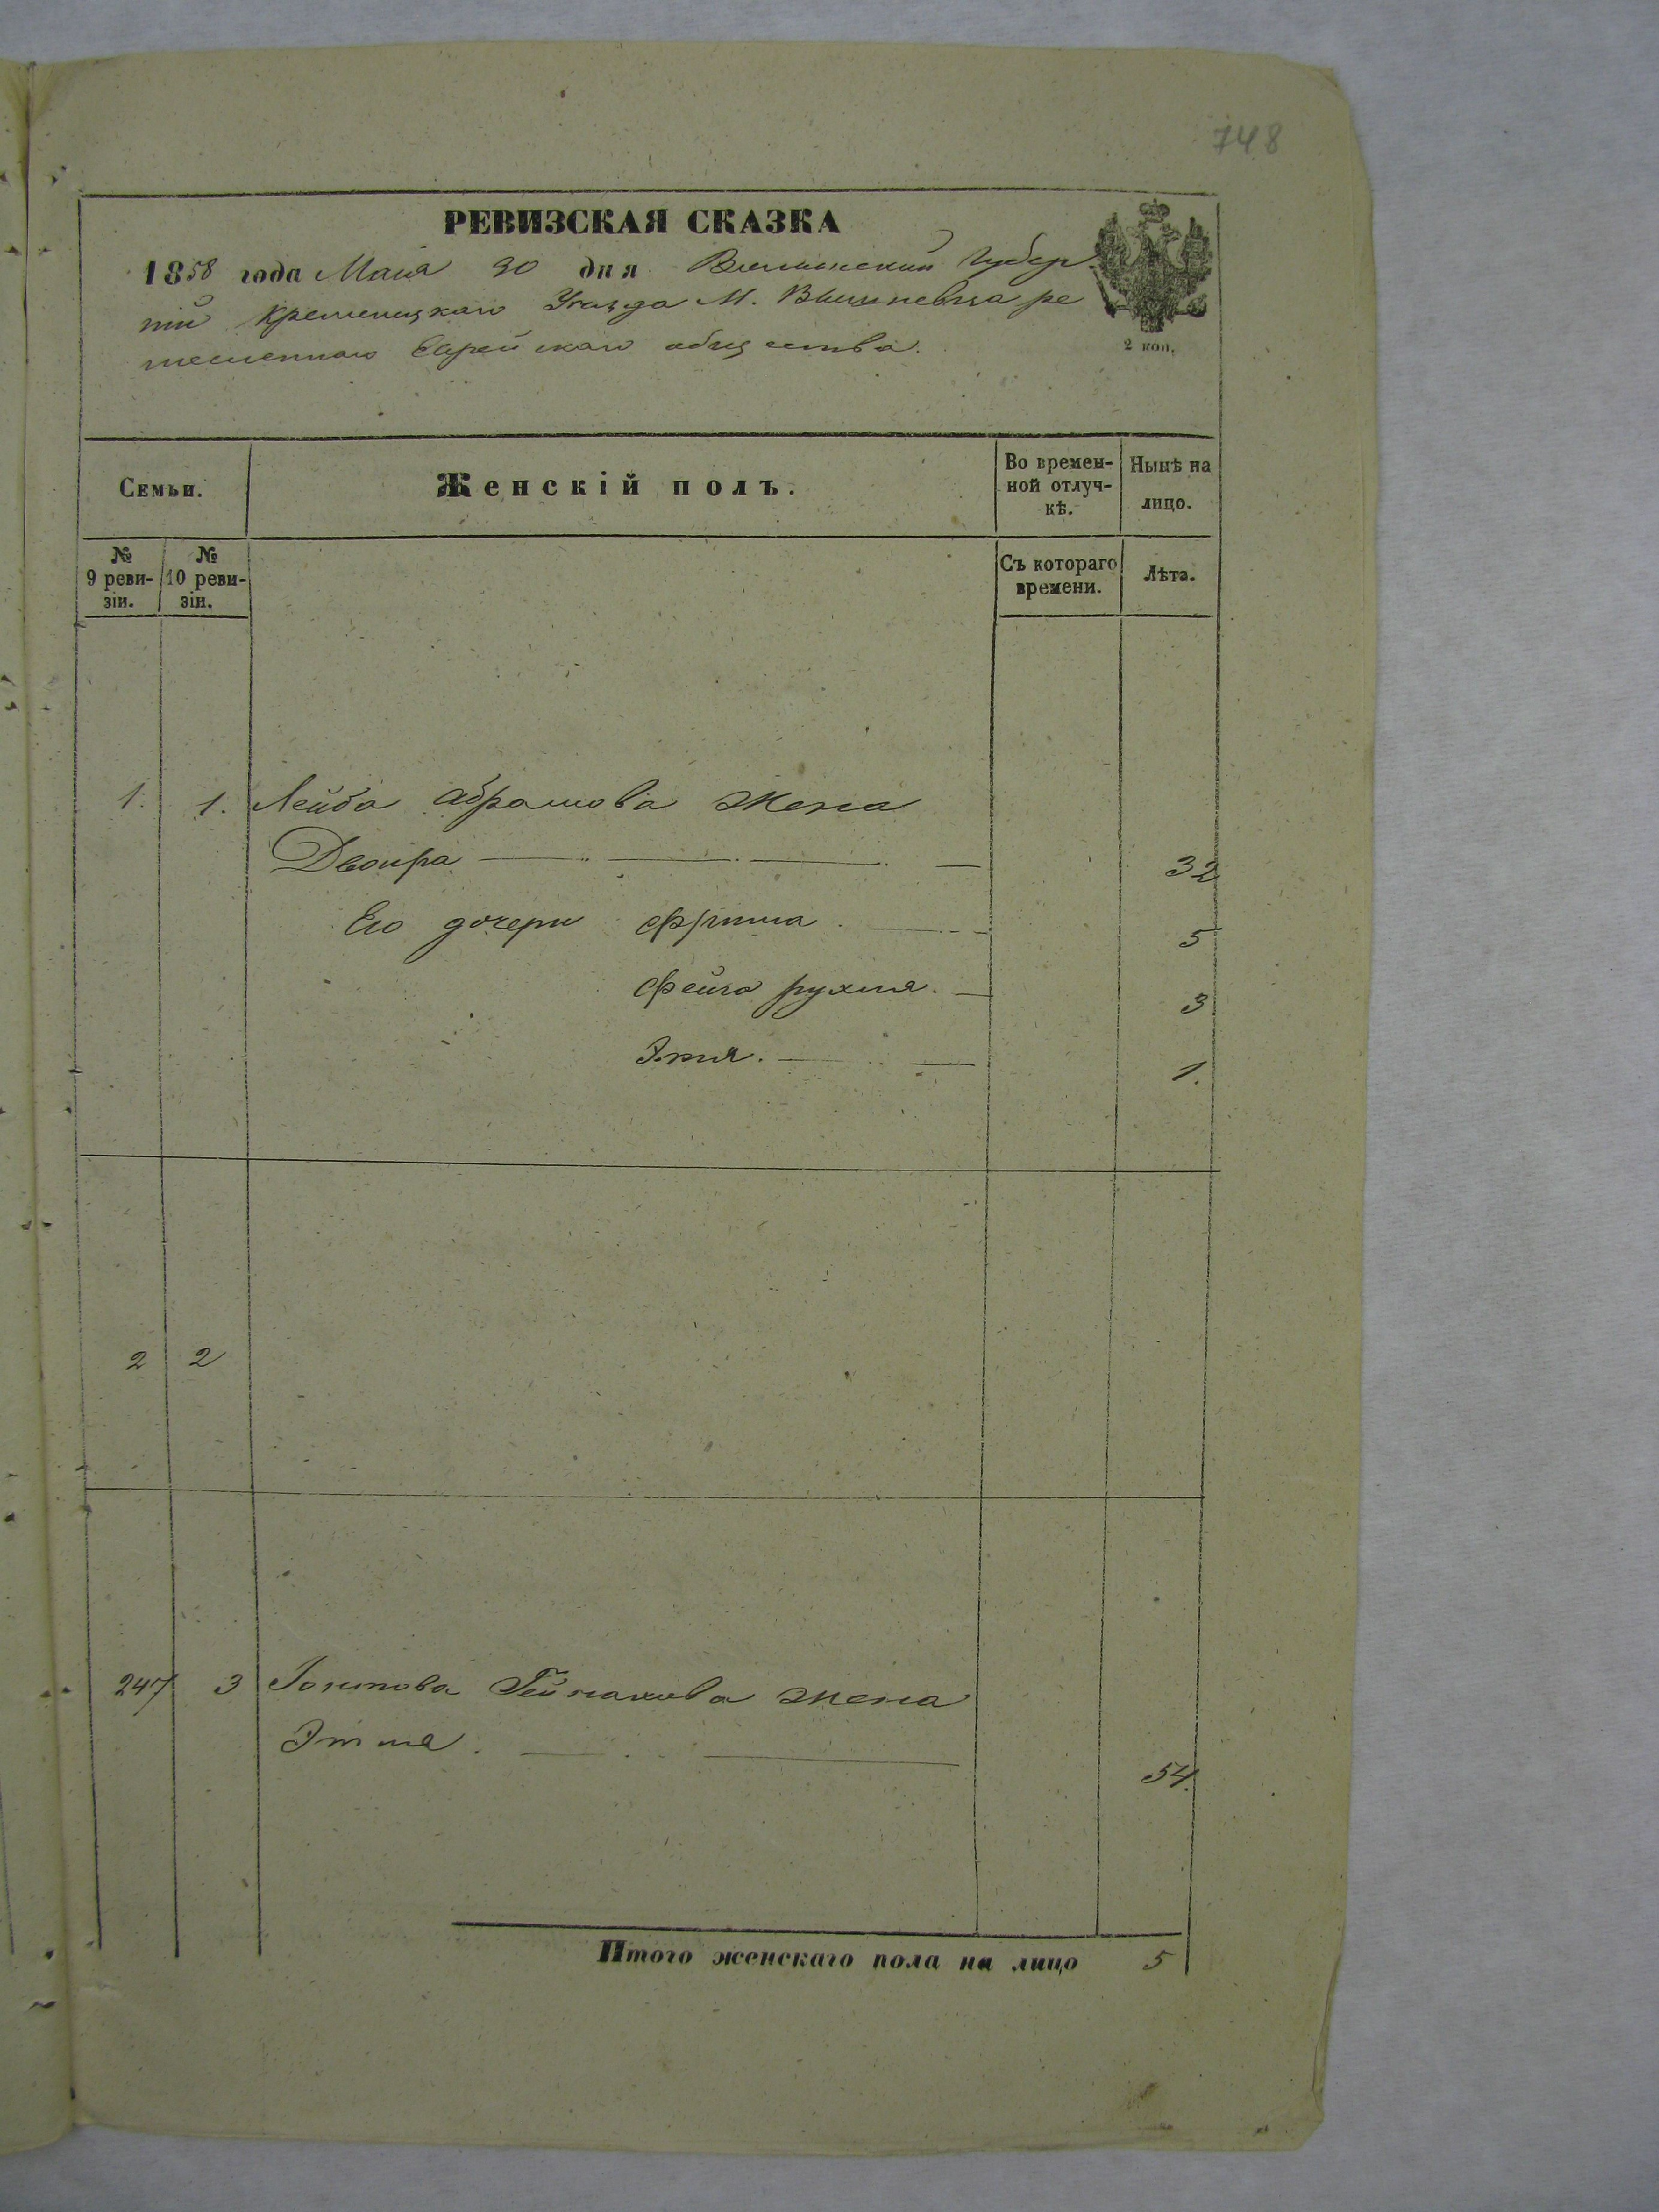 748
РЕВИЗСКАЯ СКАЗКА
1858 года Мая 30 дня Волынской Губер
нiи Кременецкаго Уезда М. Вишневца ре
месленнаго Еврейскаго общества.
2 коп.
Семьи.
Женскій полъ.
Во времен-
ной отлуч-
кѣ.
Нынѣ на
лицо.
№
9 реви-
зіи.
№
10 реви-
зіи.
Съ котораго
времени.
Лѣта.
1. 1. Лейба Абрамова жена
Двойра 32
Его дочери Фрима 5
Фейга рухля. 3
Этля. 1.
2 2
247 3 жена
Этля. 54.
Итого женскаго пола на лицо 5